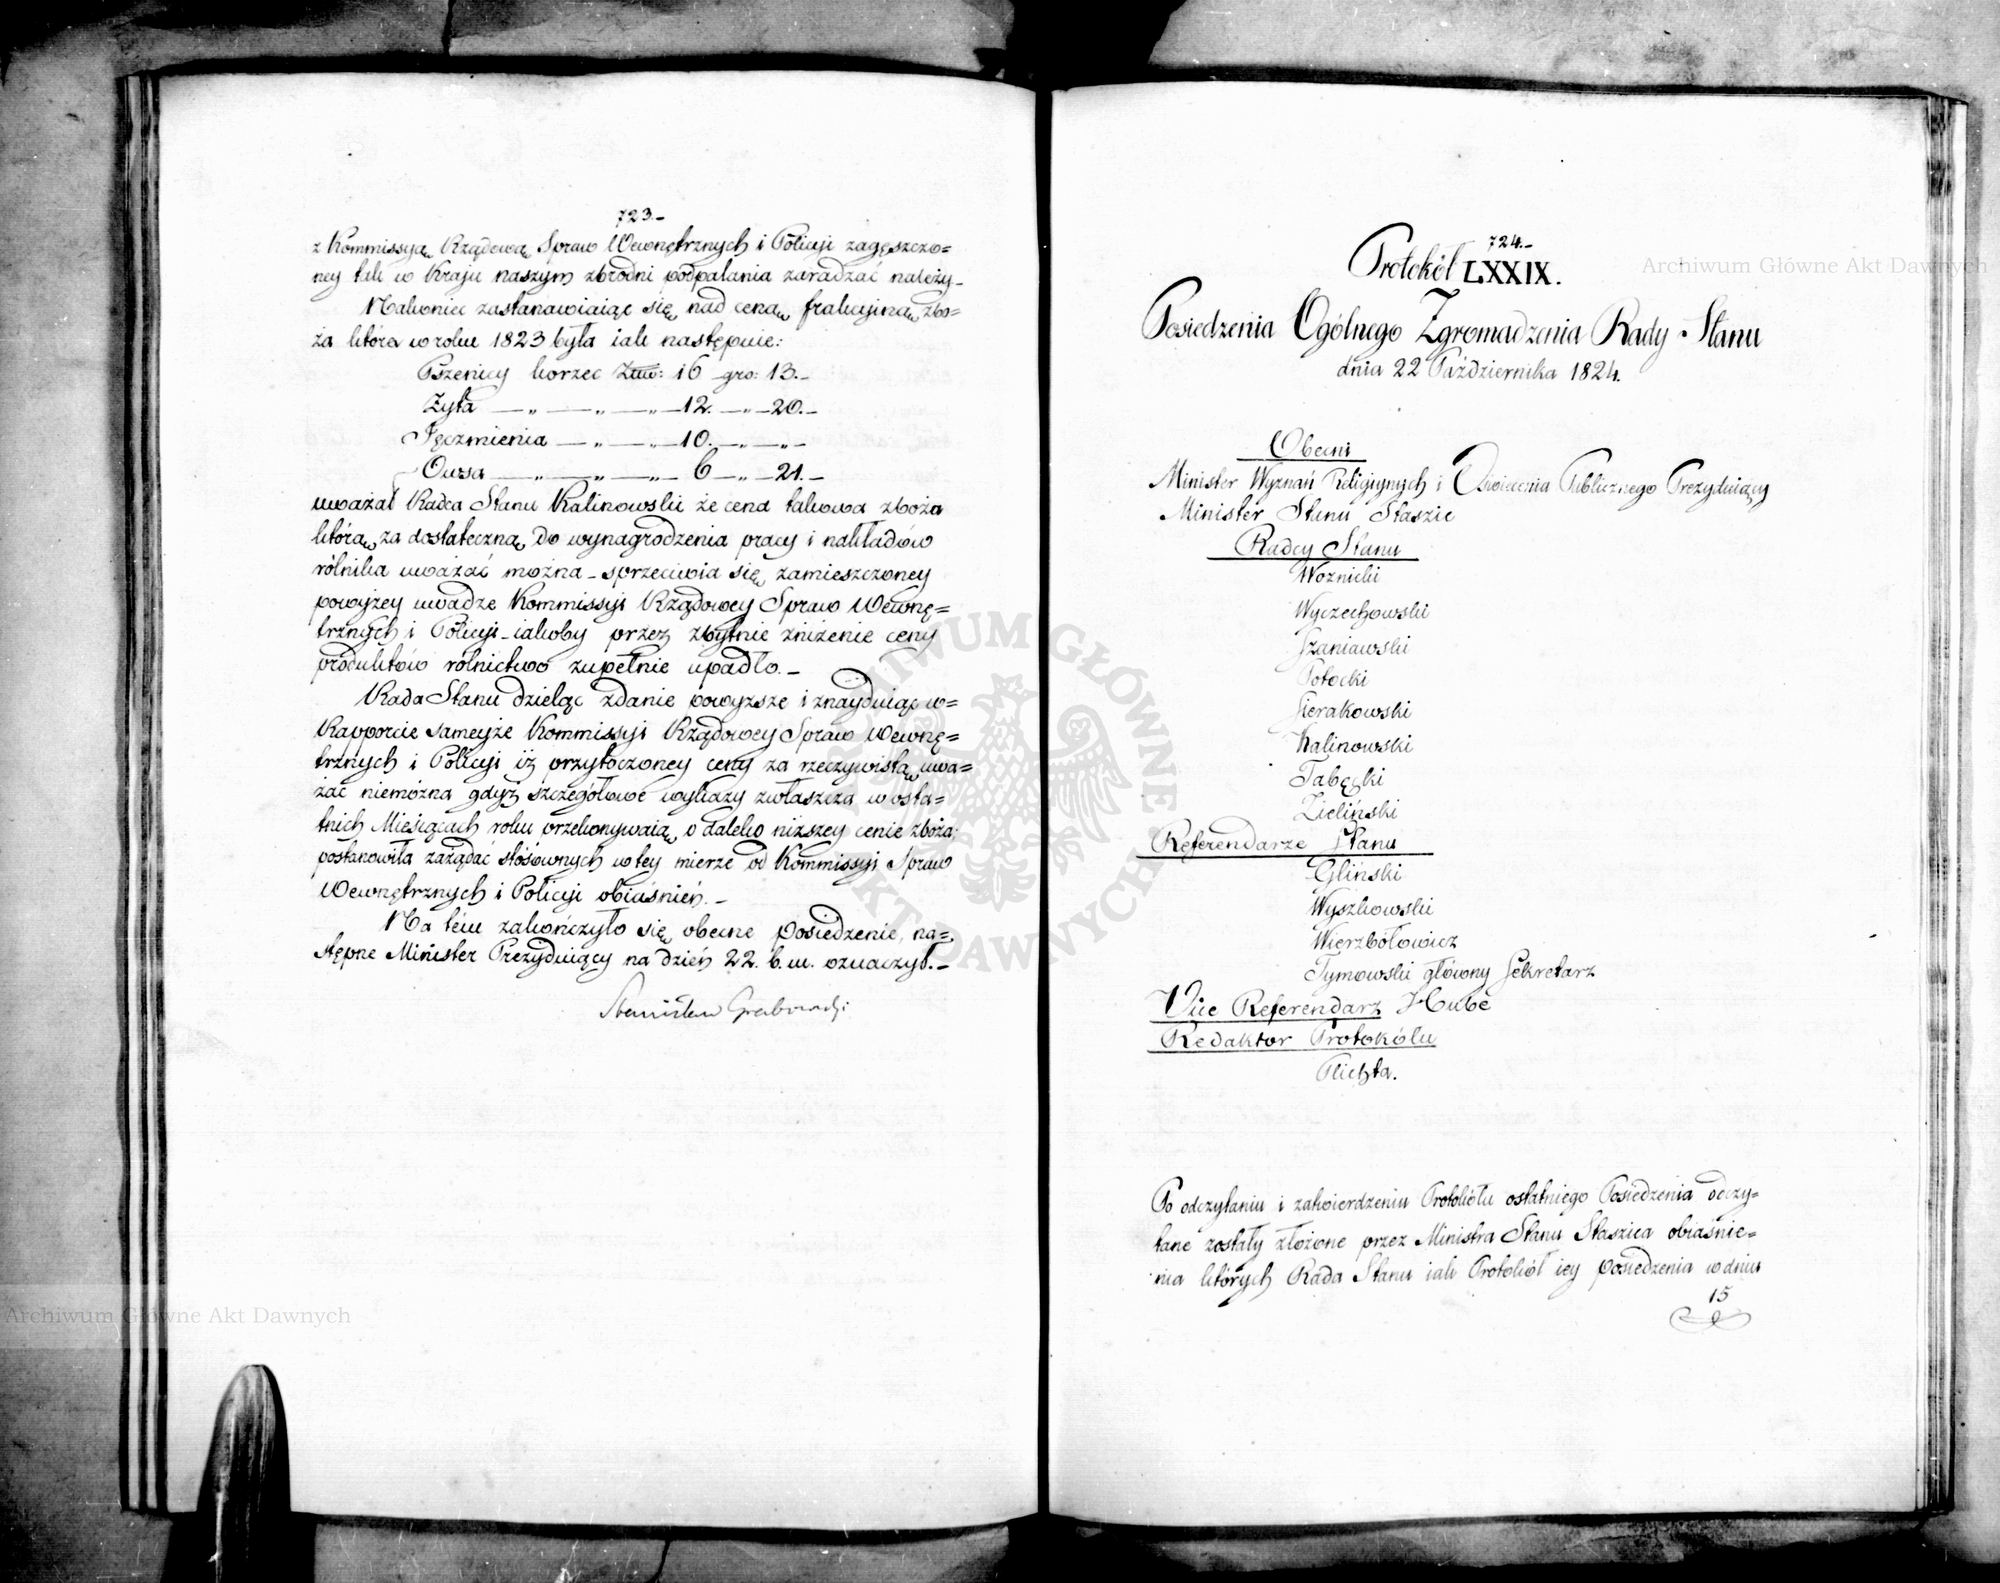 723.-
z Kommissyą Rządową Spraw Wewnętrznych i Policyi zagęszczo=
ney tak w Kraju naszym zbrodni podpalania zaradzać należy.-
Nakoniec zastanawiaiąc się nad ceną frakcyiną zbo=
ża która w roku 1823 była iak następuie:
Pszenicy korzec Złw: 16 gro: 13.-
Żyta — „ — „ — „ — 12. — „ — 20.-
Jęczmienia — „ — „ — 10. — „ — „ -
Owsa — „ — „ — „ — 6 — „ — 21.-
uważał Radca Stanu Kalinowski że cena takowa zboża
którą za dostateczną do wynagrodzenia pracy i nakładów
rólnika uważać można - sprzeciwia się zamieszczoney
powyżey uwadze Kommissyi Rządowey Spraw Wewnę=
trznych i Policyi - iakoby przez zbytnie zniżenie ceny
produktów rolnictwo zupełnie upadło.-
Rada Stanu dzieląc zdanie powyższe i znayduiąc w=
Rapporcie sameyże Kommissyi Rządowey Spraw Wewnę=
trznych i Policyi iż przytoczoney ceny za rzeczywistą uwa=
żać niemożna gdyż szczegółowe wykazy zwłaszcza w osta=
tnich Miesiącach roku przekonywaią o daleko niższey cenie zboża;
postanowiła zażądać stósownych w tey mierze od Kommissyi Spraw
Wewnętrznych i Policyi obiaśnień.-
Na tém zakończyło się obecne posiedzenie, na=
stępne Minister Prezyduiący na dzień 22. b. m. oznaczył.-
Stanisław Grabowski
724.-
Protokół LXXIX.
Posiedzenia Ogólnego Zgromadzenia Rady Stanu
dnia 22 Października 1824.
Obecni
Minister Wyznań Religiynych i Oświecenia Publicznego Prezyduiący
Minister Stanu Staszic
Radcy Stanu
Woznicki
Wyczechowski
Szaniawski
Potocki
Sierakowski
Kalinowski
Tabęcki
Zieliński
Referendarze Stanu
Gliński
Wyszkowski
Wierzbołowicz
Tymowski główny Sekretarz
Vice Referendarz Hube
Redaktor Protokółu
Plichta.
Po odczytaniu i zatwierdzeniu Protokółu ostatniego Posiedzenia odczy=
tane zostały złożone przez Ministra Stanu Staszica obiaśnie=
nia których Rada Stanu iak Protokół iey posiedzenia w dniu
15
Archiwum Główne Akt Dawnych
Archiwum Główne Akt Dawnych
ARCHIWUM GŁÓWNE AKT DAWNYCH